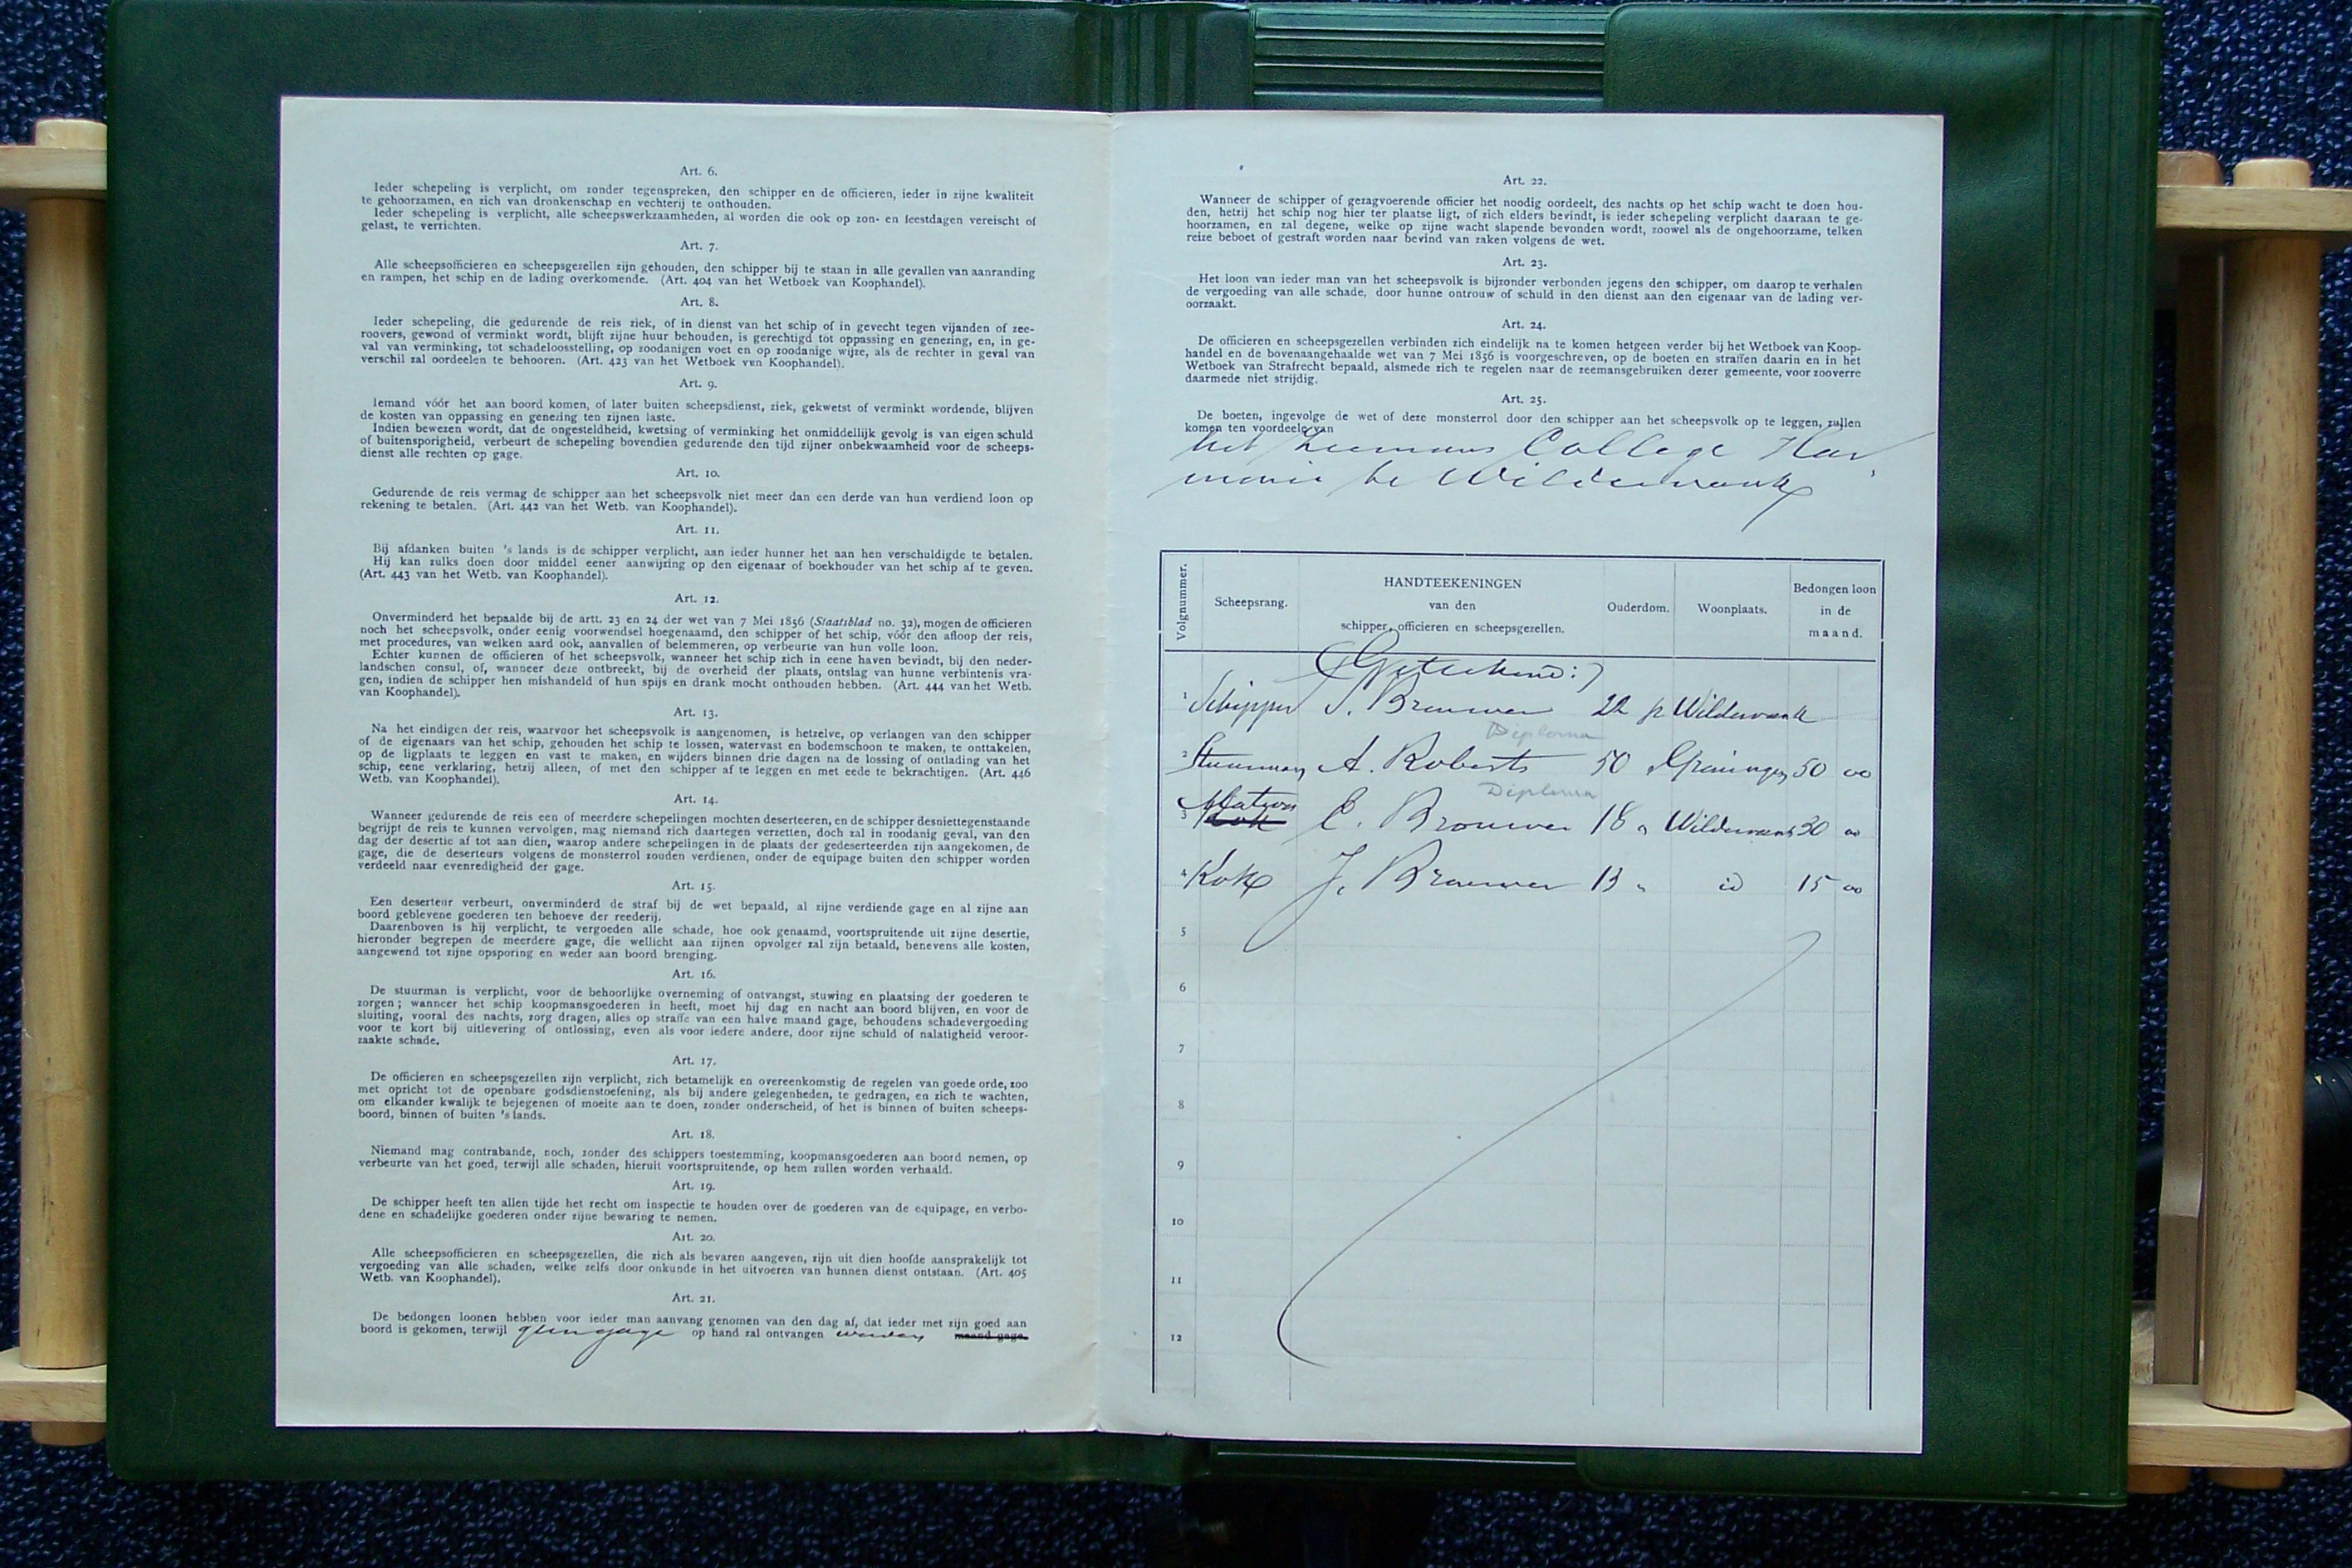 Art. 6.
Ieder schepeling is verplicht, om zonder tegenspreken, den schipper en de officieren, ieder in zijne kwaliteit
te gehoorzamen, en zich van dronkenschap en vechterij te onthouden.
Ieder schepeling is verplicht, alle scheepswerkzaamheden, al worden die ook op zon- en feestdagen vereischt of
gelast, te verrichten.
Art. 7.
Alle scheepsofficieren en scheepsgezellen zijn gehouden, den schipper bij te staan in alle gevallen van aanranding
en rampen, het schip en de lading overkomende. (Art. 404 van het Wetboek van Koophandel).
Art. 8.
Ieder schepeling, die gedurende de reis ziek, of in dienst van het schip of in gevecht tegen vijanden of zee-
roovers, gewond of verminkt wordt, blijft zijne huur behouden, is gerechtigd tot oppassing en genezing, en, in ge-
val van verminking, tot schadeloosstelling, op zoodanigen voet en op zoodanige wijze, als de rechter in geval van
verschil zal oordeelen te behooren. (Art. 423 van het Wetboek van Koophandel).
Art. 9.
Iemand vóór het aan boord komen, of later buiten scheepsdienst, ziek, gekwetst of verminkt wordende, blijven
de kosten van oppassing en genezing ten zijnen laste.
Indien bewezen wordt, dat de ongesteldheid, kwetsing of verminking het onmiddellijk gevolg is van eigen schuld
of buitensporigheid, verbeurt de schepeling bovendien gedurende den tijd zijner onbekwaamheid voor de scheeps-
dienst alle rechten op gage.
Art. 10.
Gedurende de reis vermag de schipper aan het scheepsvolk niet meer dan een derde van hun verdiend loon op
rekening te betalen. (Art. 442 van het Wetb. van Koophandel).
Art. 11.
Bij afdanken buiten 's lands is de schipper verplicht, aan ieder hunner het aan hen verschuldigde te betalen.
Hij kan zulks doen door middel eener aanwijzing op den eigenaar of boekhouder van het schip af te geven.
(Art. 443 van het Wetb. van Koophandel).
Art. 12.
Onverminderd het bepaalde bij de artt. 23 en 24 der wet van 7 Mei 1856 (Staatsblad no. 32), mogen de officieren
noch het scheepsvolk, onder eenig voorwendsel hoegenaamd, den schipper of het schip, vóór den afloop der reis,
met procedures, van welken aard ook, aanvallen of belemmeren, op verbeurte van hun volle loon.
Echter kunnen de officieren of het scheepsvolk, wanneer het schip zich in eene haven bevindt, bij den neder-
landschen consul, of, wanneer deze ontbreekt, bij de overheid der plaats, ontslag van hunne verbintenis vra-
gen, indien de schipper hen mishandeld of hun spijs en drank mocht onthouden hebben. (Art. 444 van het Wetb.
van Koophandel).
Art. 13.
Na het eindigen der reis, waarvoor het scheepsvolk is aangenomen, is hetzelve, op verlangen van den schipper
of de eigenaars van het schip, gehouden het schip te lossen, watervast en bodemschoon te maken, te onttakelen,
op de ligplaats te leggen en vast te maken, en wijders binnen drie dagen na de lossing of ontlading van het
schip, eene verklaring, hetzij alleen, of met den schipper af te leggen en met eede te bekrachtigen. (Art. 446
Wetb. van Koophandel).
Art. 14.
Wanneer gedurende de reis een of meerdere schepelingen mochten deserteeren, en de schipper desniettegenstaande
begrijpt de reis te kunnen vervolgen, mag niemand zich daartegen verzetten, doch zal in zoodanig geval, van den
dag der desertie af tot aan dien, waarop andere schepelingen in de plaats der gedeserteerden zijn aangekomen, de
gage, die de deserteurs volgens de monsterrol zouden verdienen, onder de equipage buiten den schipper worden
verdeeld naar evenredigheid der gage.
Art. 15.
Een deserteur verbeurt, onverminderd de straf bij de wet bepaald, al zijne verdiende gage en al zijne aan
boord geblevene goederen ten behoeve der reederij.
Daarenboven is hij verplicht, te vergoeden alle schade, hoe ook genaamd, voortspruitende uit zijne desertie,
hieronder begrepen de meerdere gage, die wellicht aan zijnen opvolger zal zijn betaald, benevens alle kosten,
aangewend tot zijne opsporing en weder aan boord brenging.
Art. 16.
De stuurman is verplicht, voor de behoorlijke overneming of ontvangst, stuwing en plaatsing der goederen te
zorgen; wanneer het schip koopmansgoederen in heeft, moet hij dag en nacht aan boord blijven, en voor de
sluiting, vooral des nachts, zorg dragen, alles op straffe van een halve maand gage, behoudens schadevergoeding
voor te kort bij uitlevering of ontlossing, even als voor iedere andere, door zijne schuld of nalatigheid veroor-
zaakte schade.
Art. 17.
De officieren en scheepsgezellen zijn verplicht, zich betamelijk en overeenkomstig de regelen van goede orde, zoo
met opricht tot de openbare godsdienstoefening, als bij andere gelegenheden, te gedragen, en zich te wachten,
om elkander kwalijk te bejegenen of moeite aan te doen, zonder onderscheid, of het is binnen of buiten scheeps-
boord, binnen of buiten 's lands.
Art. 18.
Niemand mag contrabande, noch, zonder des schippers toestemming, koopmansgoederen aan boord nemen, op
verbeurte van het goed, terwijl alle schaden, hieruit voortspruitende, op hem zullen worden verhaald.
Art. 19.
De schipper heeft ten allen tijde het recht om inspectie te houden over de goederen van de equipage, en verbo-
dene en schadelijke goederen onder zijne bewaring te nemen.
Art. 20.
Alle scheepsofficieren en scheepsgezellen, die zich als bevaren aangeven, zijn uit dien hoofde aansprakelijk tot
vergoeding van alle schaden, welke zelfs door onkunde in het uitvoeren van hunnen dienst ontstaan. (Art. 405
Wetb. van Koophandel).
Art. 21.
De bedongen loonen hebben voor ieder man aanvang genomen van den dag af, dat ieder met zijn goed aan
boord is gekomen, terwijl geen gage op hand zal ontvangen worden maand gage.
Art. 22.
Wanneer de schipper of gezagvoerende officier het noodig oordeelt, des nachts op het schip wacht te doen hou-
den, hetzij het schip nog hier ter plaatse ligt, of zich elders bevindt, is ieder schepeling verplicht daaraan te ge-
hoorzamen, en zal degene, welke op zijne wacht slapende bevonden wordt, zoowel als de ongehoorzame, telken
reize beboet of gestraft worden naar bevind van zaken volgens de wet.
Art. 23.
Het loon van ieder man van het scheepsvolk is bijzonder verbonden jegens den schipper, om daarop te verhalen
de vergoeding van alle schade, door hunne ontrouw of schuld in den dienst aan den eigenaar van de lading ver-
oorzaakt.
Art. 24.
De officieren en scheepsgezellen verbinden zich eindelijk na te komen hetgeen verder bij het Wetboek van Koop-
handel en de bovenaangehaalde wet van 7 Mei 1856 is voorgeschreven, op de boeten en straffen daarin en in het
Wetboek van Strafrecht bepaald, alsmede zich te regelen naar de zeemansgebruiken dezer gemeente, voor zooverre
daarmede niet strijdig.
Art. 25.
De boeten, ingevolge de wet of deze monsterrol door den schipper aan het scheepsvolk op te leggen, zullen
komen ten voordeele van
het Zeemans College Har
monie te Wildervank
Volgnummer. Scheepsrang. HANDTEEKENINGEN van den schipper, officieren en scheepsgezellen. Ouderdom. Woonplaats. Bedongen loon in de maand.
(Geteekend:)
1 Schipper J. Brouwer 22 jr Wildervank
Diploma
2 Stuurman A. Roberts 50 " Groningen 50 00
Diploma
Matroos
3 Kok E. Brouwer 18 " Wildervank 30 00
4 Kok J. Brouwer 13 " id 15 00
5
6
7
8
9
10
11
12